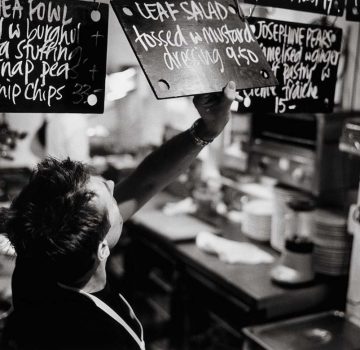 FOWL
w burghul
a stuffing
snap pea
chips 33.-
LEAF SALAD
tossed w mustard
dressing 9.50
JOSEPHINE PEARS
caramelised w ginger
pastry w
CRÈME FRAICHE
15-